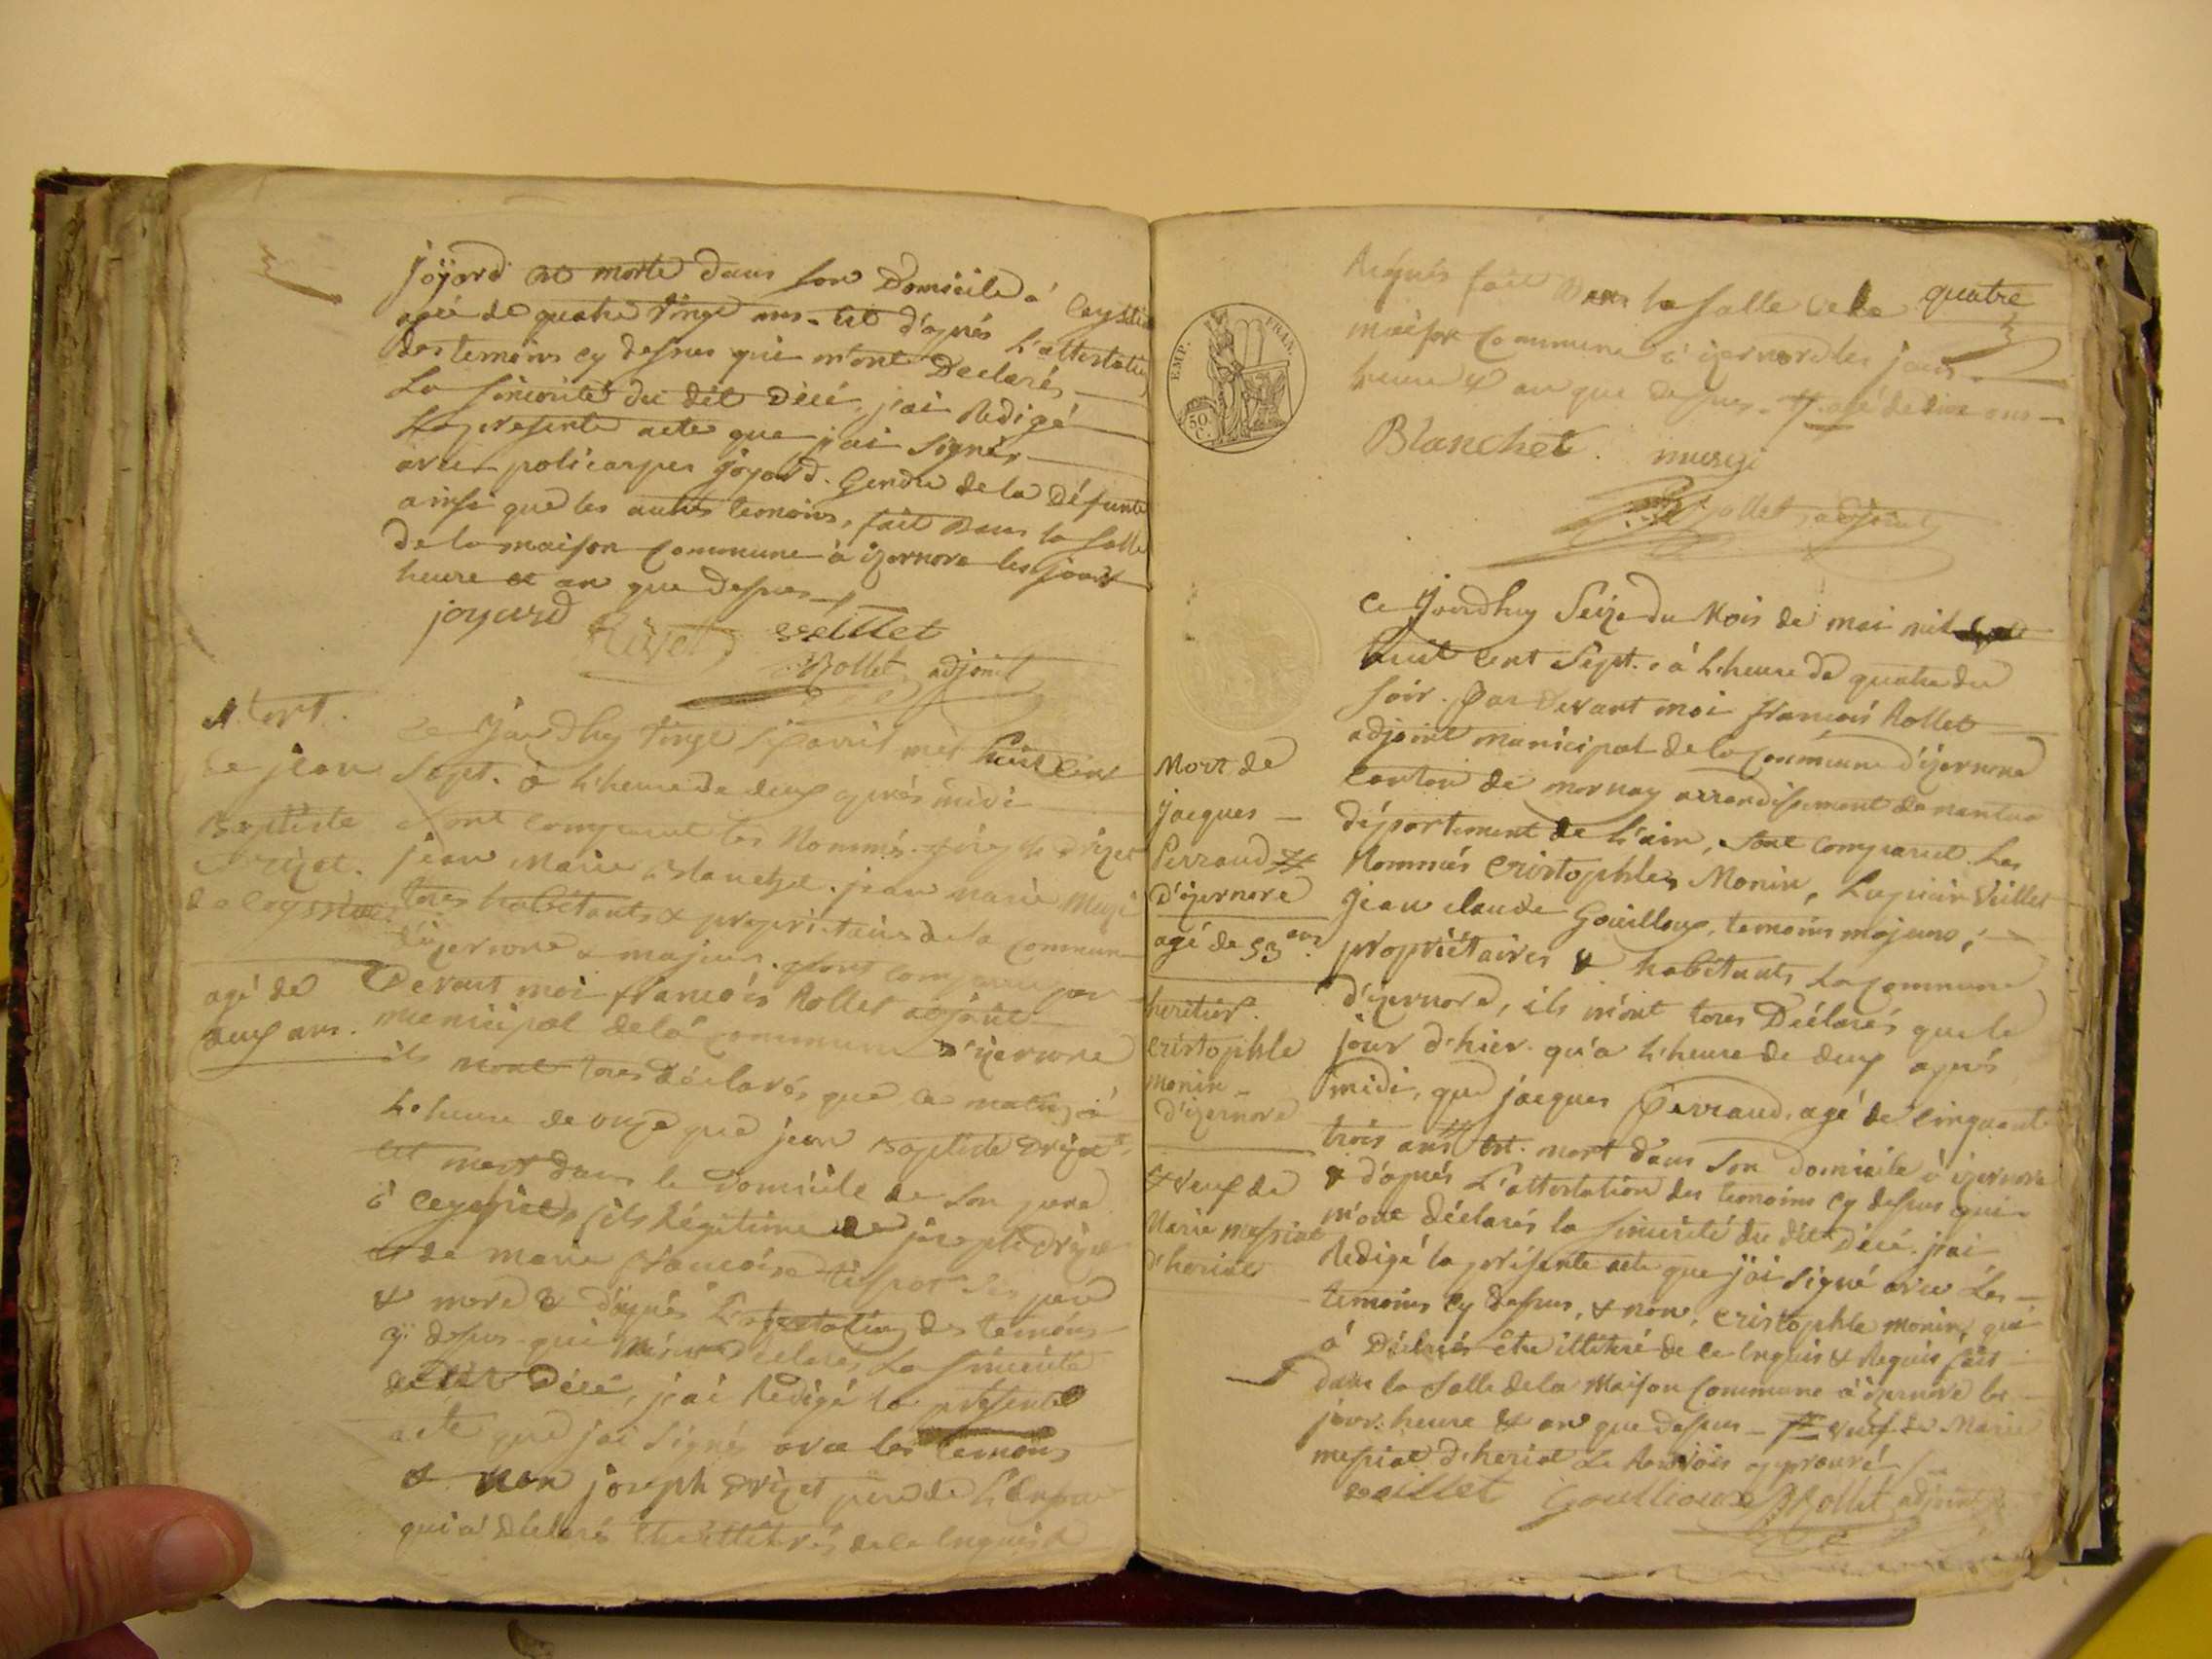 joyard est morte dans son Domicile à Ceyssiat
agée de quatre vingt ans. Et d'après L'attestation
des temoins cy dessus qui m'ont Declarés
La sincerité du dit Décé, j'ai Redigé
La presente acte que j'ai signés
avec policarpes joyard. Gendre de la Défunte
ainsi que les autres temoins, fait Dans la salle
de la maison Commune à izernore les jour
heure et an que dessus
joyard Rivet veillet
Rollet adjoint
Mort.
de jean
Baptiste
Drizet.
de Ceyssiat
agé de
deux ans.
Ce Jourdhuy vingt six avril mil huit cent
Sept. à L'heure de deux après midi
sont comparut les Nommés. joseph Drizet
jean Marie Blanchet. jean marie
tous habitants & proprietaires de la Commune
d'izernore & majeurs. sont comparu par
Devant moi francois Rollet adjoint
municipal de la Commune d'izernore
ils m'ont tous Déclarés, que ce matin à
L'heure de onze que jean Baptiste Drizet
Est mort dans le Domicile de son pere
à Ceyssiat, fils Légitime de joseph Drizet
et de marie francoise tissot ses père
& mere & d'après L'attestation des temoins
cy dessus qui m'ont declarés La sincerité
du dit Décé, j'ai Redigé la présente
acte que j'ai signés avec les temoins
& non joseph Drizet père de L'Enfant
qui a déclarés être illétrés de ce Enquis &
Requis fait Dans la salle de la quatre
maison Commune à izernore les jour
heure & an que dessus agé de deux ans
Blanchet.
Rollet, adjoint
EMP. FRAN.
50 C.
Mort de
jacques
Perraud
d'izernore
agé de 53 ans
heritier.
Cristophle
monin
d'izernore
& veuf de
Marie messiat
d'heriat
Ce Jourdhuy Seize du Mois de mai mil
huit cent Sept. à L'heure de quatre du
soir. Par Devant moi francois Rollet
adjoint municipal de la Commune d'izernore
Canton de mornay arrondissement de nantua
département de L'ain, sont comparut. Les
Nommés Cristophles Monin, Veillet
Jean claude Gouilloux, temoins majeurs,
propriétaires & habitants La Commune
d'izernore, ils m'ont tous Déclarés que le
jour d'hier. qu'a L'heure de deux après
midi, que jacques Perraud. agé de Cinquante
trois ans Est. mort dans son Domicile à izernore
& d'après L'attestation des temoins cy dessus qui
m'ont déclarés la sincerité du dit Décé. j'ai
Redigé la présente acte que j'ai signé avec Les
temoins cy dessus, & non, Cristophle monin, qui
à Déclarés être illétré de ce Enquis & Requis fait
dans la salle de la Maison Commune à izernore les
jour heure & an que dessus veuf de Marie
messiat d'heriat Le Renvois approuvé
veillet Gouilloux Rollet adjoint